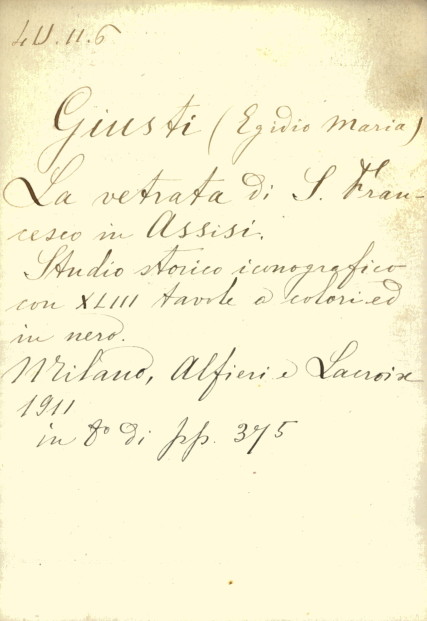 4U.11.6
Giusti (Egidio Maria)
La vetrata di S. Fran-
cesco in Assisi.
Studio storico iconografico
con XLIII tavole a colori ed
in nero.
Milano, Alfieri e Lacroix
1911
in 8º di pp. 375